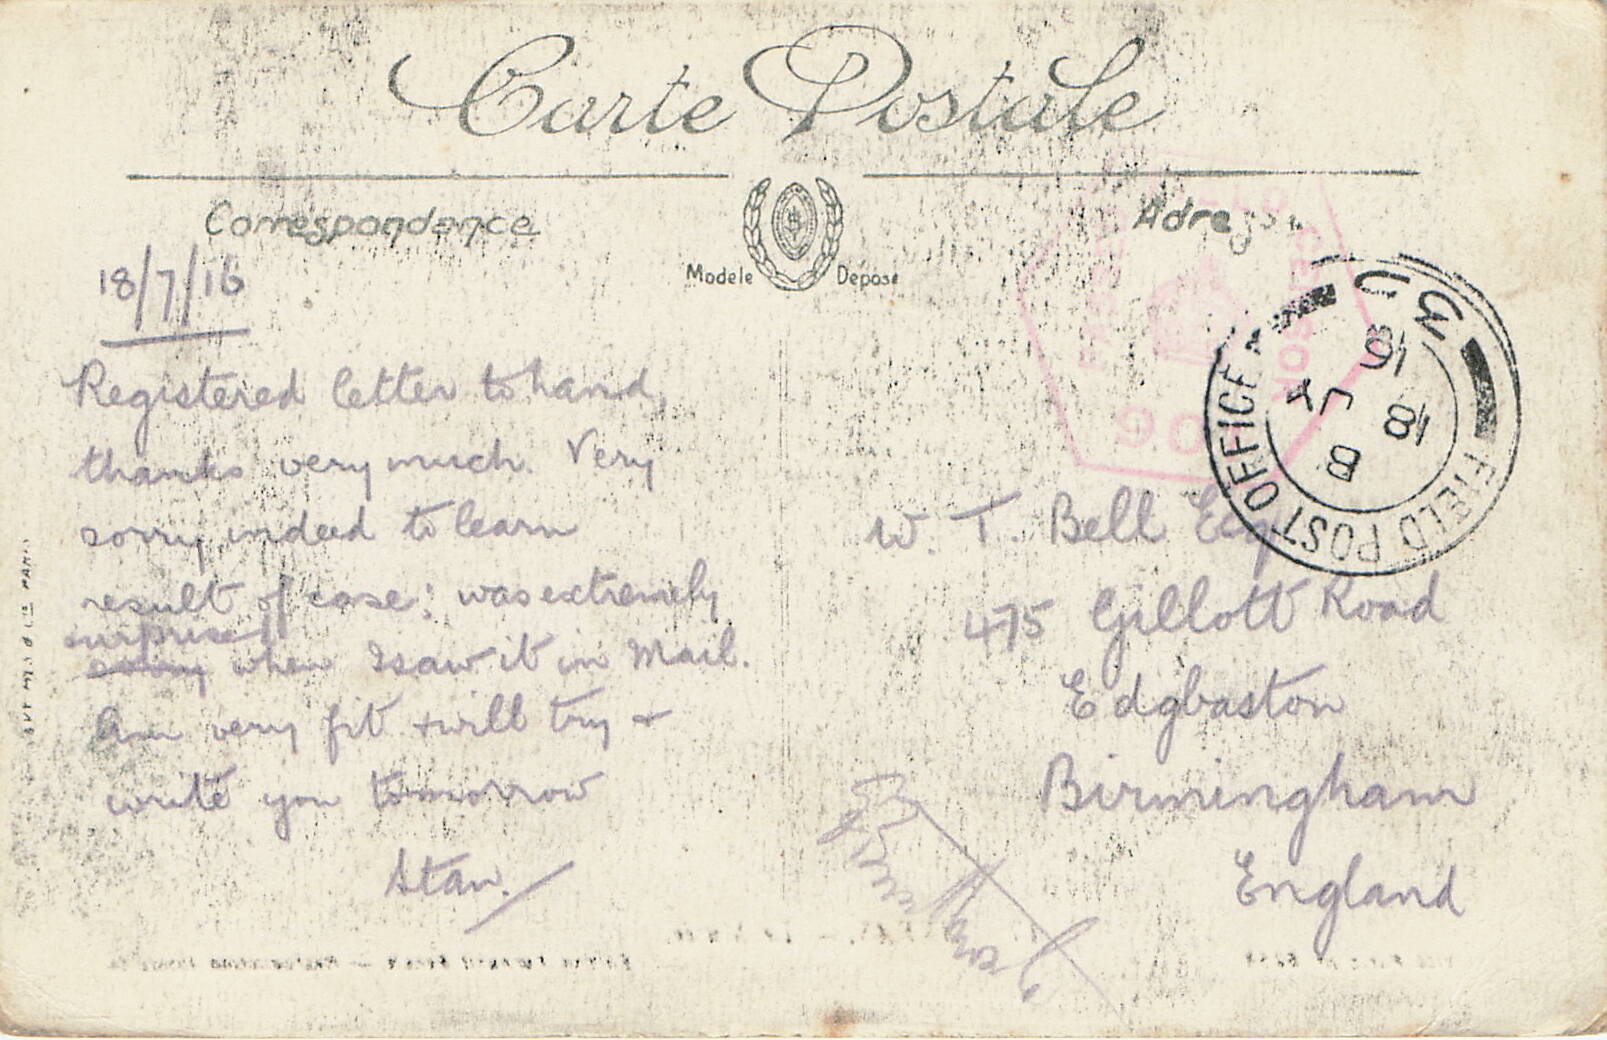 Carte Postale
Correspondance
Modele Deposé
18/7/16
Registered letter to hand,
thanks very much. Very
sorry indeed to learn
result of case: was extremely
surprised
sorry when I saw it in Mail.
Am very fit & will try &
write you tomorrow
Stan.
W. T. Bell Esq
475 Gillott Road
Edgbaston
Birmingham
England
FIELD POST OFFICE
U3
B
18
JY
16
CENSOR